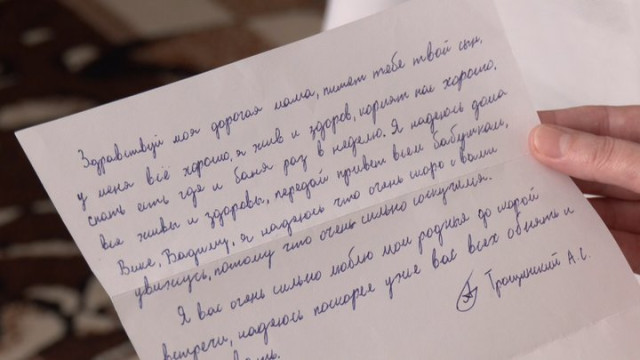 Здравствуй моя дорогая мама, пишет тебе твой сын,
у меня всё хорошо, я жив и здоров, кормят нас хорошо,
спать есть где и баня раз в неделю. Я надеюсь дома
все живы и здоровы, передай привет всем бабушкам,
Вике, Вадиму, я надеюсь что очень скоро с вами
увижусь, потому что очень сильно соскучился.
Я вас очень сильно люблю мои родные до скорой
встречи, надеюсь поскорее уже вас всех обнять и
Трощинский А.С.